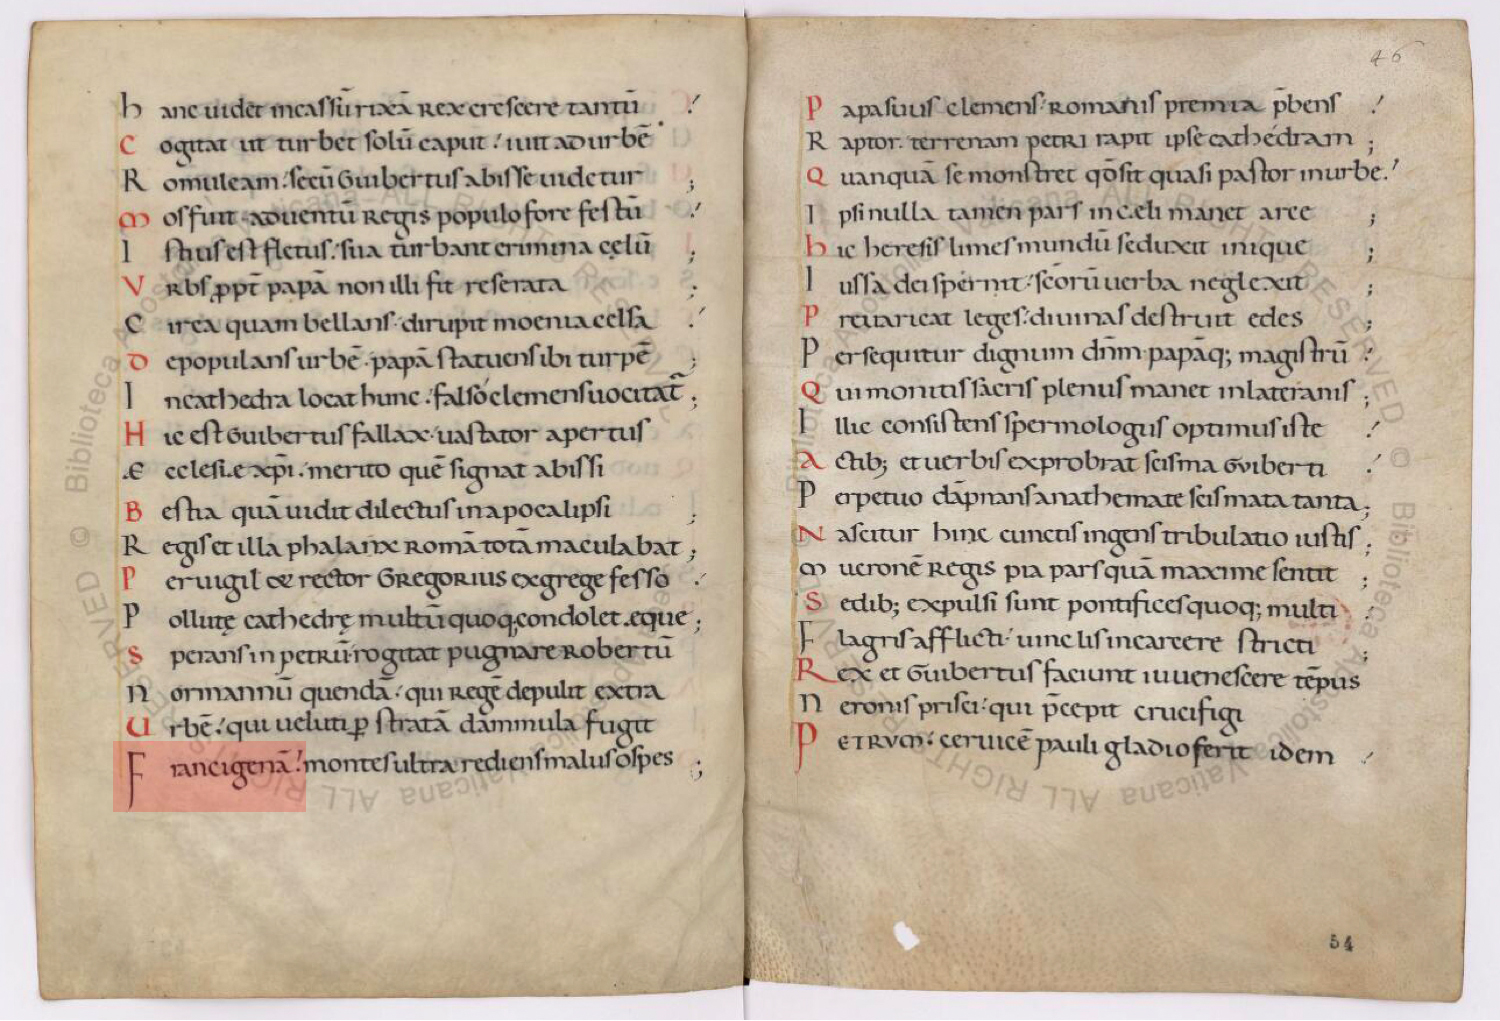 h anc uidet meassū rixā Rex crescere tantū
C ogitat ut turbet solū caput. iuit ad urbē
R omuleam. secū Guibertus abisse uidetur
M os fuit aduentū Regis populo fore festū
I stius est fletus. sua turbant crimina cęlū
V Rbs ꝓpt̄ papā non illi fit reserata
C irca quam bellans. dirupit moenia celsa
D epopulans urbē. papā statuens ibi turpē
I n cathedra locat hunc. falso clemens uocitat̄
H ic est Guibertus fallax. uastator apertus
Æ cclesiæ xp̄i. merito quē signat abissi
B estia quā uidit dilectus in apocalipsi
R egis et illa phalanx Romā totā maculabat
P eruigil rector GREGORIUS ex grege fesso
P ollutę cathedrę multū quoq; condolet æque
S perans in petrū. rogitat pugnare Robertū
N ormannū quendā. qui Regē depulit extra
U rbē. qui ueluti ꝑ stratā dāmmula fugit
F rancigenā. montes ultra rediens malus ospes
46
P apa suus clemens. Romanis premia p̄bens
R aptor. terrenam petri rapit ipse cathedram
Q uanquā se monstret qd̄ sit quasi pastor in urbe
I psi nulla tamen pars in cæli manet arce
h ic heresis limes mundū seduxit inique
I ussa dei spernit. sc̄orū uerba neglexit
P reuaricat leges. diuinas destruit edes
P ersequitur dignum dn̄m papāq; magistrū
Q ui monitis sacris plenus manet in lateranis
I llic consistens spermologus optimus iste
A ctib; et uerbis exprobrat scisma Guiberti
P erpetuo dāpnans anathemate scismata tanta
N ascitur hinc cunctis ingens tribulatio iustis
M ueronē Regis pia pars quā maxime sentit
S edib; expulsi sunt pontifices quoq; multi
F lagris afflicti. uinclis in carcere stricti
R ex et Guibertus faciunt iuuenescere tēpus
N eronis prisci. qui p̄cepit crucifigi
P ETRVM. ceruicē pauli gladio ferit idem
54